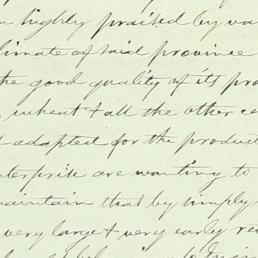 highly praised by va
limate of said province
the good quality of its pro
, wheat & all the other ce
adapted for the product
terprise are wanting to
aintain that by simply
very large & very early re